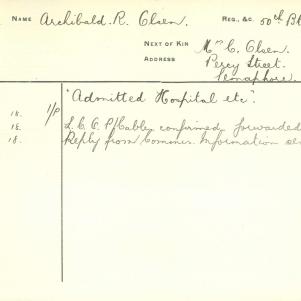 NAME Archibald. R. Olsen. REG., &C. 50th B
NEXT OF KIN Mrs C. Olsen.
ADDRESS Percy Street.
Semaphore.
"Admitted Hospital etc".
18. 1/P
18. L.C.C. P/Cable confirmed forwarded
18. Reply from Commun. Information